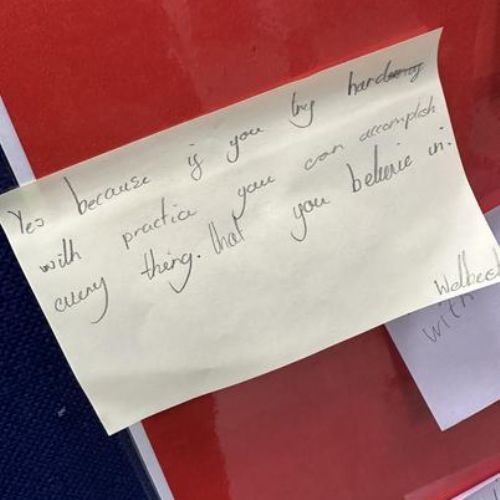 Yes because if you try hard
with practice you can accomplish
every thing. that you believe in.
with